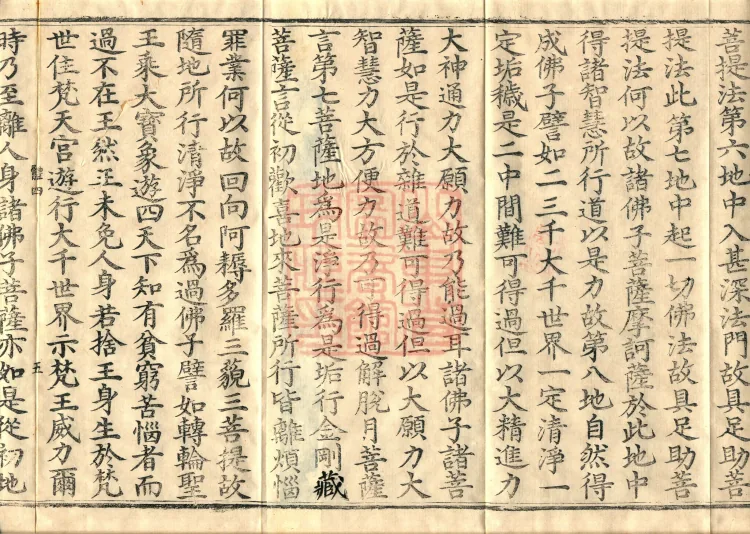 菩提法第六地中入甚深法門故具足助菩
提法此第七地中起一切佛法故具足助菩
提法何以故諸佛子菩薩摩訶薩於此地中
得諸智慧所行道以是力故第八地自然得
成佛子譬如二三千大千世界一定清淨一
定垢穢是二中間難可得過但以大精進力
大神通力大願力故乃能過耳諸佛子諸菩
薩如是行於雜道難可得過但以大願力大
智慧力大方便力故乃可得過解脫月菩薩
言第七菩薩地為是淨行為是垢行金剛藏
菩薩言從初歡喜地來菩薩所行皆離煩惱
罪業何以故回向阿耨多羅三藐三菩提故
隨地所行清淨不名為過佛子譬如轉輪聖
王乘大寶象遊四天下知有貧窮苦惱者而
過不在王然王未免人身若捨王身生於梵
世住梵天宮遊行大千世界示梵王威力爾
四
五
時乃至離人身諸佛子菩薩亦如是從初地